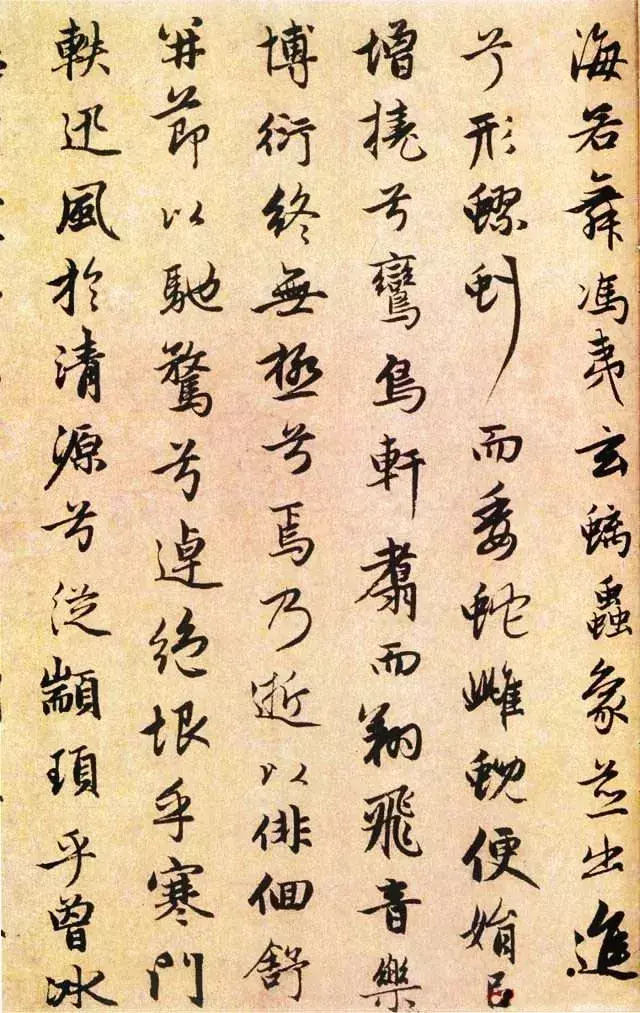 海若舞馮夷玄螭蟲象並出進
兮形蟉虬而委蛇雌蜺便娟㠯
增撓兮鸞鳥軒翥而翔飛音樂
博衍終無極兮焉乃逝以俳佪舒
并節以馳騖兮逴絶垠乎寒門
軼迅風於清源兮從顓頊乎曾冰